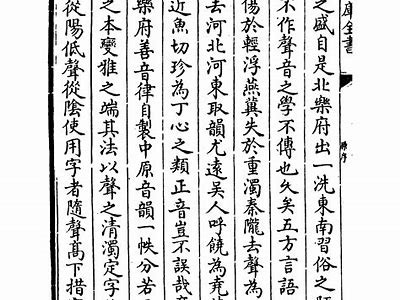 全書
之盛自是北樂府出一洗東南習俗之
不作聲音之學不傳也久矣五方言語
傷於輕浮燕冀失於重濁秦隴去聲為
去河北河東取韻尤遠吳人呼饒為堯
近魚切珍為丁心之類正音豈不誤哉
樂府善音律自製中原音韻一帙分若
之本變雅之端其法以聲之清濁定字
從陽低聲從陰使用字者隨聲高下措